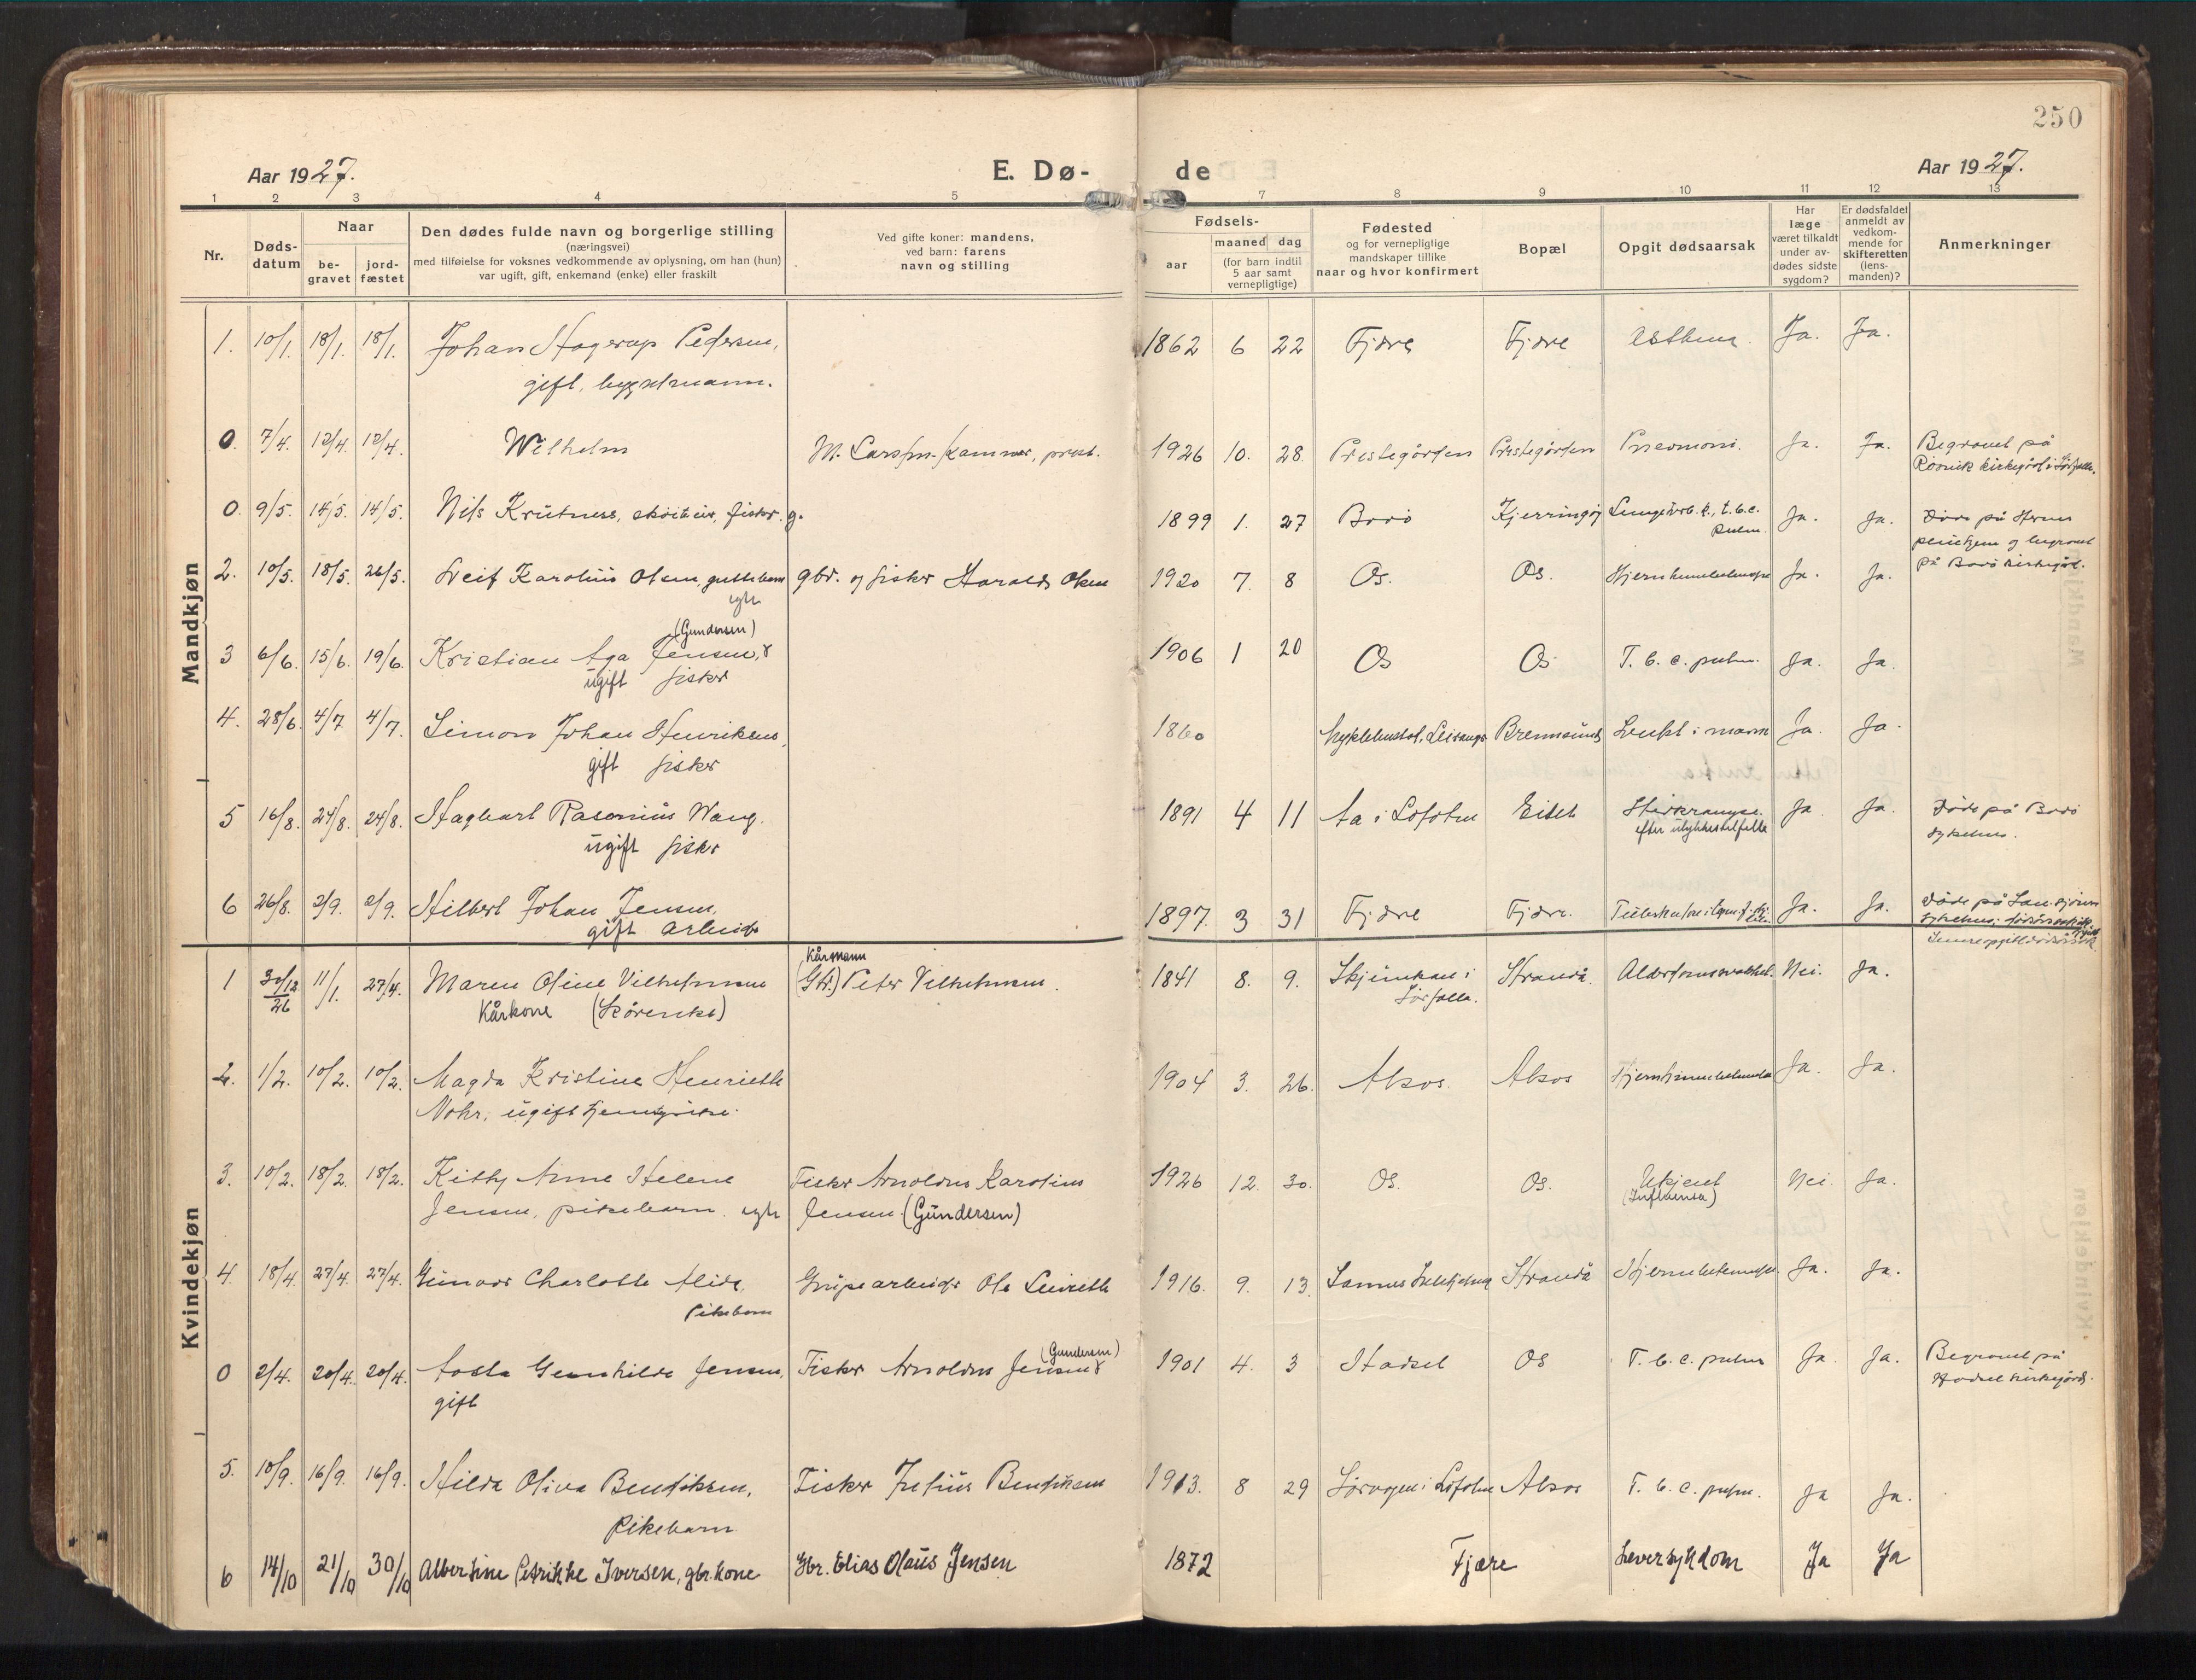 250
Aar 1927. E. Dø- de Aar 1927.
1 2 3 4 5 7 8 9 10 11 12 13
Nr.
Døds-
datum
Naar
be-
gravet
jord-
fæstet
Den dødes fulde navn og borgerlige stilling
(næringsvei)
med tilføielse for voksnes vedkommende av oplysning, om han (hun)
var ugift, gift, enkemand (enke) eller fraskilt
Ved gifte koner: mandens,
ved barn: farens
navn og stilling
Fødsels-
aar
maaned dag
(for barn indtil
5 aar samt
vernepligtige)
Fødested
og for vernepligtige
mandskaper tillike
naar og hvor konfirmert
Bopæl
Opgit dødsaarsak
Har
læge
været tilkaldt
under av-
dødes sidste
sygdom?
Er dødsfaldet
anmeldt av
vedkom-
mende for
skifteretten
(lens-
manden)?
Anmerkninger
Mandkjøn
1. 10/1. 18/1. 18/1. Johan Hagerup Pedersen, 1862 6 22 Fjære Fjære Asthma. Ja. Ja.
gift,
0. 7/4. 12/4. 12/4. Wilhelm M. prest. 1926 10. 28. Prestegården Prestegården Pneomoni. Ja. Ja. Begravet på
kirkegård i
0. 9/5. 14/5. 14/5. Nils fisker. g. 1899 1. 27 Bodö Kjerringöy t.b.c. Ja. Ja. Döde på
pulm. og begravet
2. 10/5. 18/5. 26/5. Leif Karolius Olsen, guttebarn gbr. og fisker Harald Olsen 1920 7. 8 Os. Os. Ja. Ja. på Bodö kirkegård.
egte
(Gundersen)
3 6/6. 15/6. 19/6. Kristian Aga Jensen, 1906 1 20 Os Os T. b. c. pulm. Ja. Ja.
ugift fisker
4. 28/6. 4/7 4/7. Simon Johan Henriksen, 1860 Leiranger Brennsund Ja Ja.
gift fisker
5 16/8. 24/8. 24/8. Hagbart Rasmus Wang. 1891 4 11 Aa i Lofoten Eidet Ja Ja. Döde på Bodö
ugift fisker efter ulykkestilfelle sykehus.
6 26/8. 2/9. 2/9. Hilbert Johan Jensen, 1897. 3 31 Fjære Fjære. Ja. Ja. Döde på
gift arbeider
Kvindekjøn
Kårmann
1 30/12 26 11/1. 27/4. Maren Oline Vilhelmsen (Gbr.) Peter Vilhelmsen. 1841 8. 9. i Strandå. Alderdomssvakhet. Nei. Ja.
Kårkone
2. 1/2. 10/2. 10/2. Magda Kristine Henriette 1904 3. 26. Alsos. Alsos Ja. Ja.
Nohr, ugift
3. 10/2. 18/2. 18/2. Kitty Anne Helene Fisker Arnoldus Karolius 1926 12. 30. Os. Os. Ukjent Nei. Ja.
Jensen, pikebarn. egte Jensen (Gundersen) (Influensa)
4. 18/4. 27/4. 27/4. Gunvor Charlotte Alide, Grupearbeider Ole 1916. 9. 13. Strandå Ja. Ja.
Pikebarn
(Gundersen)
0 2/4. 20/4. 20/4. Jensen, Fisker Arnoldus Jensen 1901 4. 3 Hadsel Os T. b. c. pulm Ja. Ja. Begravet på
gift Hadsel kirkegård.
5. 10/9. 16/9. 16/9. Hilda Oliva Bendiksen, Fisker Julius Bendiksen 1913. 8 29 Sörvogen i Lofoten Alsos T. b. c. pulm. Ja Ja.
Pikebarn
6 14/10 21/10 30/10 Albertine Petrikke Iversen, gbr.kone Gbr. Elias Olaus Jensen 1872 Fjære Leversykdom Ja Ja